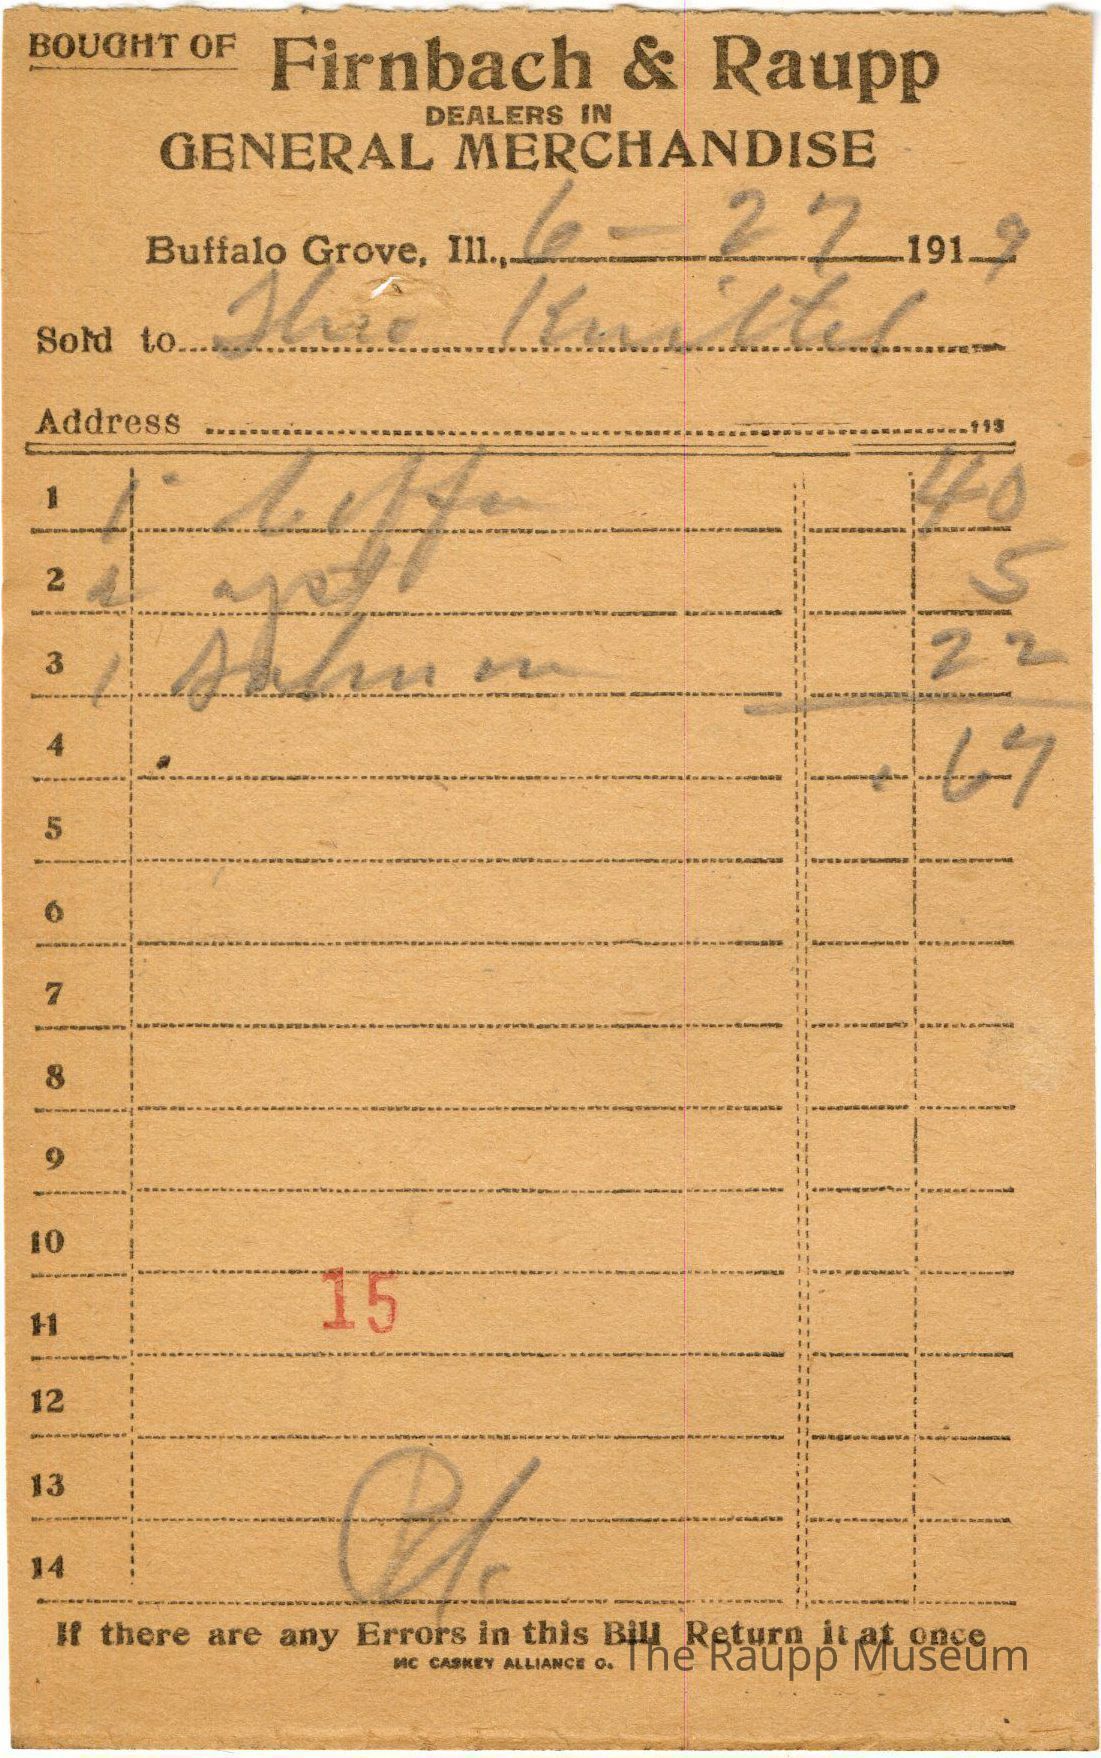 BOUGHT OF Firnbach & Raupp
DEALERS IN
GENERAL MERCHANDISE
Buffalo Grove, Ill., 6 - 27 1919
Sold to Theo Knittel
Address
1 1 Coffee 40
2 2 yst 5
3 1 Salmon 22
4 .67
5
6
7
8
9
10
11 15
12
13
14
If there are any Errors in this Bill Return it at once
MC CASKEY ALLIANCE O.
The Raupp Museum